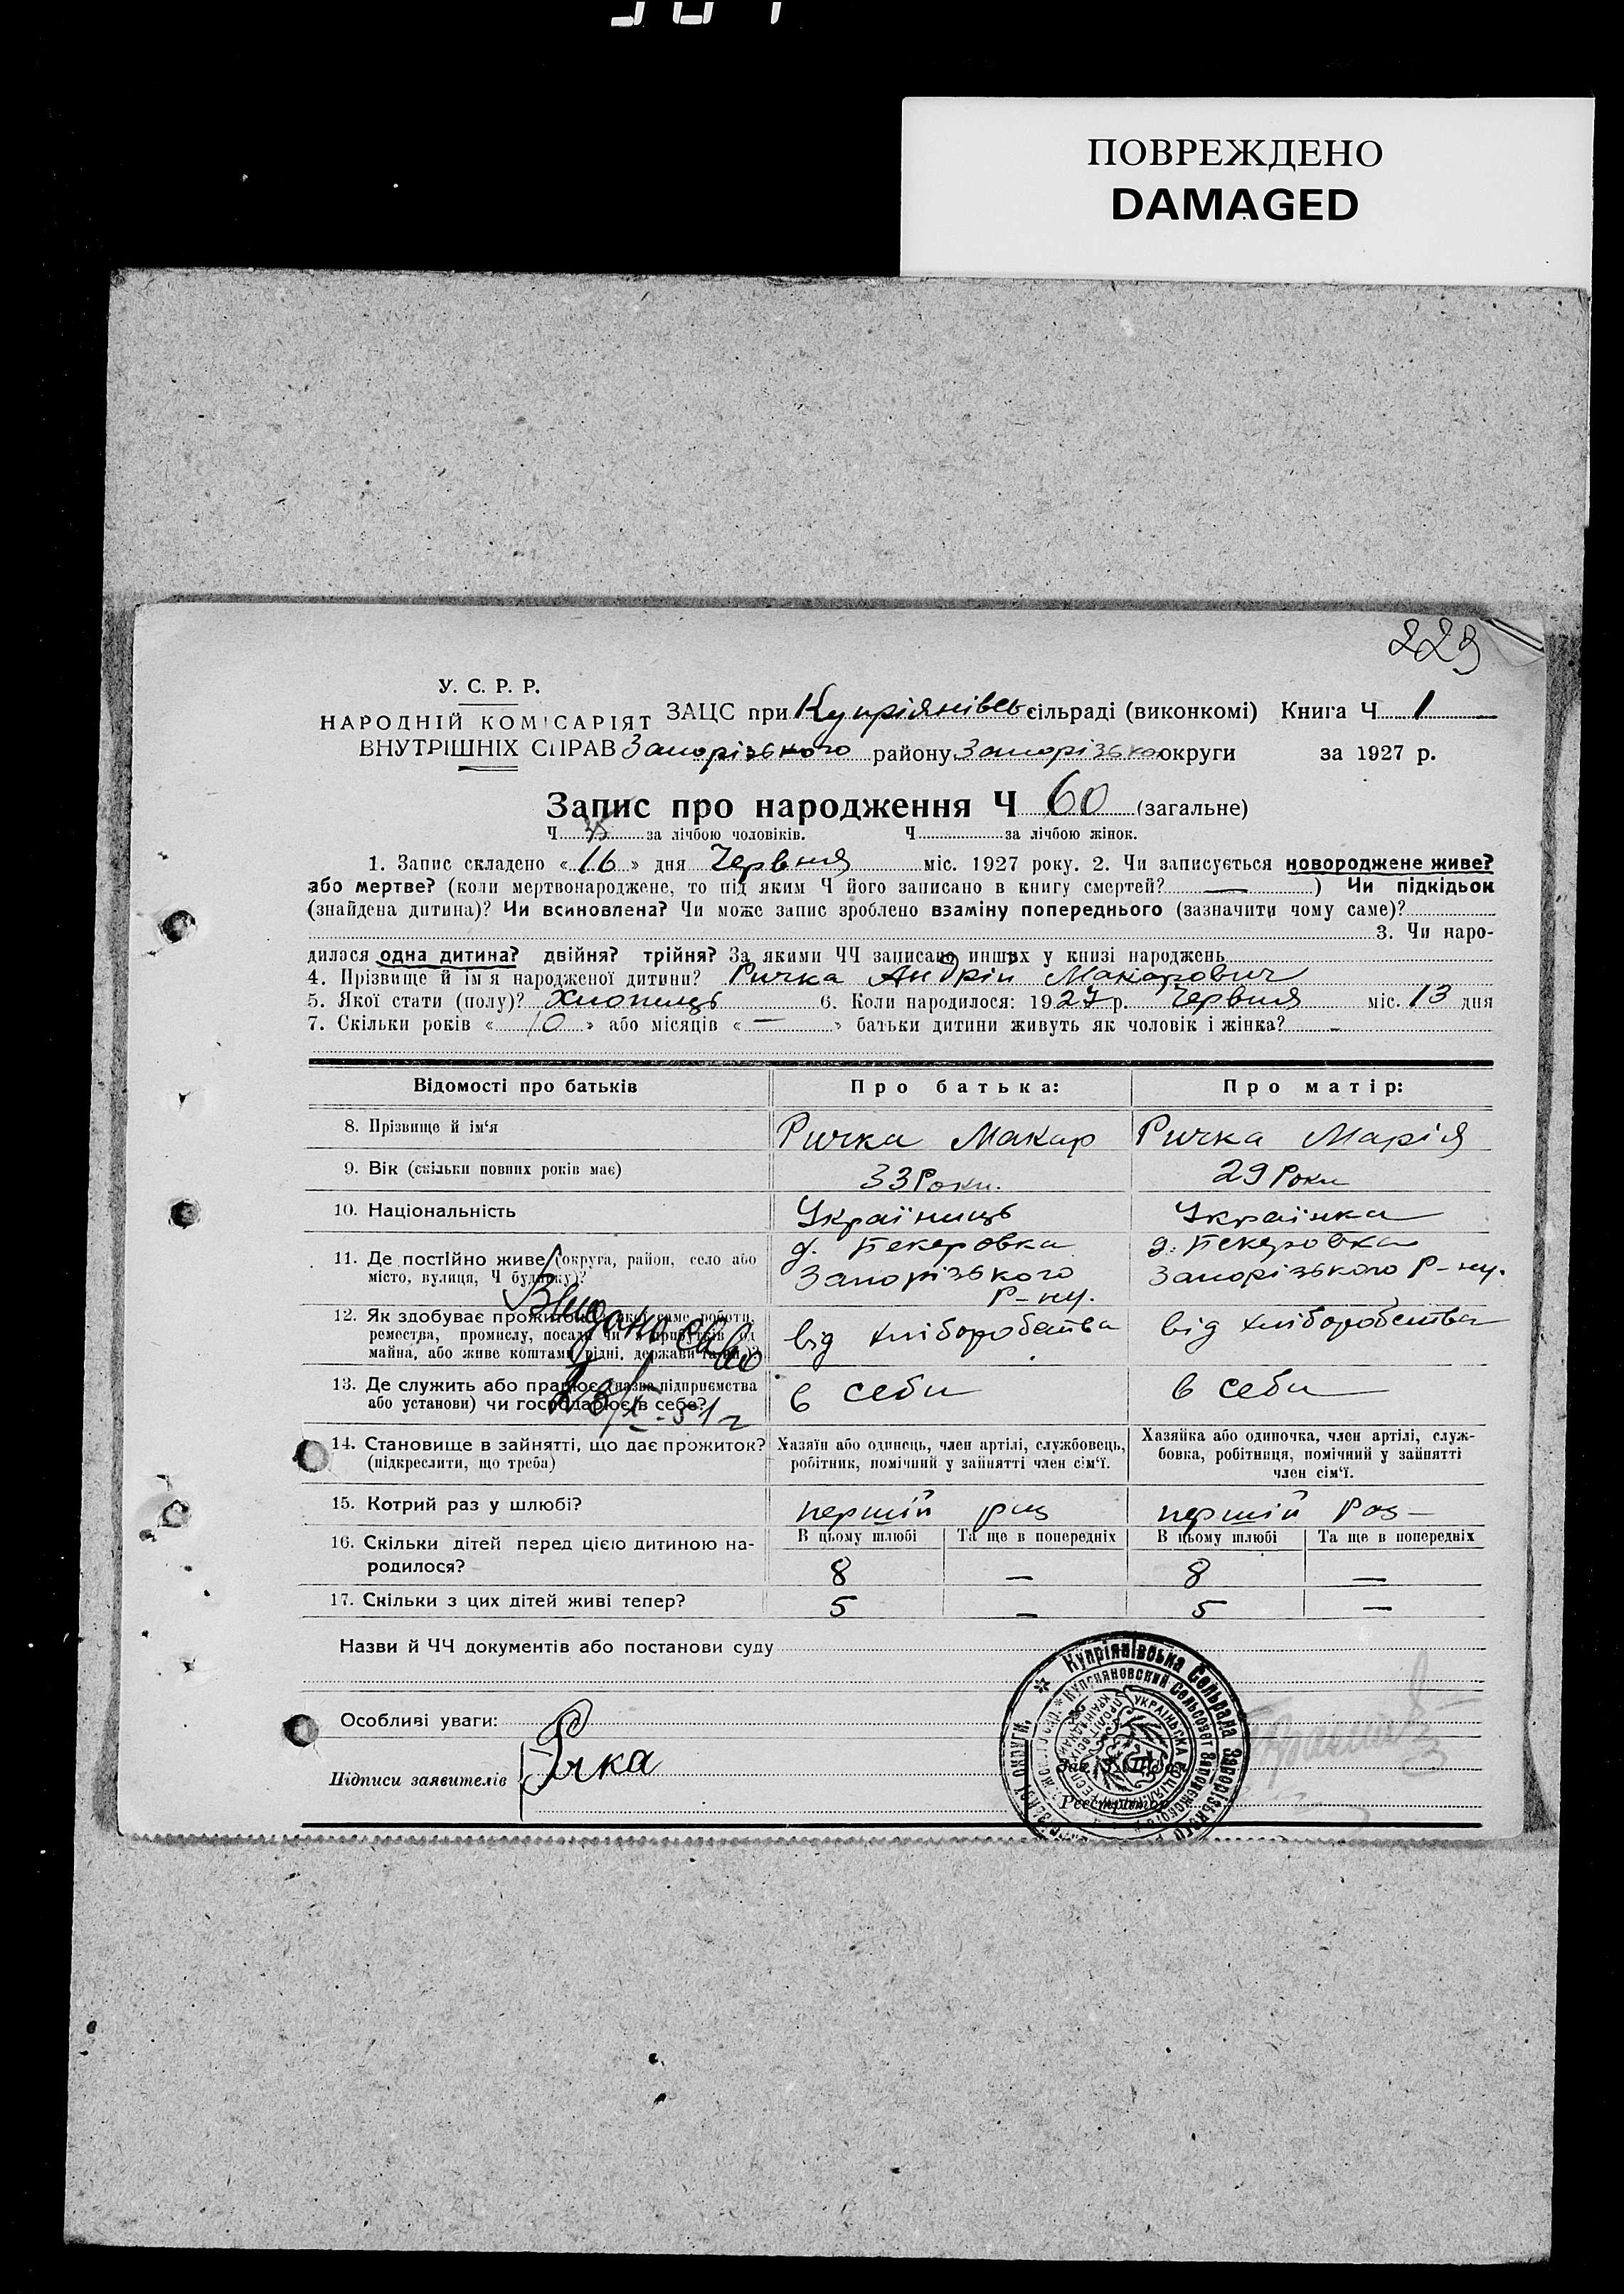 ПОВРЕЖДЕНО
DAMAGED
229
У. С. Р. Р.
НАРОДНІЙ КОМІСАРІЯТ
ВНУТРІШНІХ СПРАВ
ЗАЦС при Купріянівсь сільраді (виконкомі) Книга Ч 1
Запорізького району Запорізької округи за 1927 р.
Запис про народження Ч 60 (загальне)
Ч за лічбою чоловіків. Ч за лічбою жінок.
1. Запис складено «16» дня Червня міс. 1927 року. 2. Чи записується новороджене живе?
або мертве? (коли мертвонароджене, то під яким Ч його записано в книгу смертей? — ) Чи підкідьок
(знайдена дитина)? Чи всиновлена? Чи може запис зроблено взаміну попереднього (зазначити чому саме)?
3. Чи наро-
дилася одна дитина? двійня? трійня? За якими ЧЧ записано инших у книзі народжень
4. Прізвище й ім'я народженої дитини? Ричка Андрій Макарович
5. Якої стати (полу)? Хлопиць 6. Коли народилося: 1927 р. Червня міс. 13 дня
7. Скільки років «10» або місяців «—» батьки дитини живуть як чоловік і жінка? -
Відомості про батьків Про батька: Про матір:
8. Прізвище й ім'я Ричка Макар Ричка Марія
9. Вік (скільки повних років має) 33 Роки. 29 Роки
10. Національність Україниць Українка
11. Де постійно живе (округа, район, село або
місто, вулиця, Ч будинку)?
д. Пекеровка
Запорізького
Р-ну.
д. Пекеровка
Запорізького Р-ну.
12. Як здобуває прожиток (з якої саме роботи,
ремества, промислу, посади чи з прибутків од
майна, або живе коштами рідні, держави та ин.)?
від хліборобства від хліборобства
Видано св-во
13. Де служить або працює (назва підприємства
або установи) чи господарює в себе?
в себи в себи
14. Становище в зайнятті, що дає прожиток?
(підкреслити, що треба)
Хазяїн або одинець, член артілі, службовець,
робітник, помічний у зайнятті член сім'ї.
Хазяйка або одиночка, член артілі, служ-
бовка, робітниця, помічний у зайнятті
член сім'ї.
15. Котрий раз у шлюбі? першій раз першій Раз
В цьому шлюбі Та ще в попередніх В цьому шлюбі Та ще в попередніх
16. Скільки дітей перед цією дитиною на-
родилося?
8 — 8 —
17. Скільки з цих дітей живі тепер? 5 — 5 —
Назви й ЧЧ документів або постанови суду
Особливі уваги:
Підписи заявителів Річка
Купріянівська Сельрада Запорізького
Реєстратор